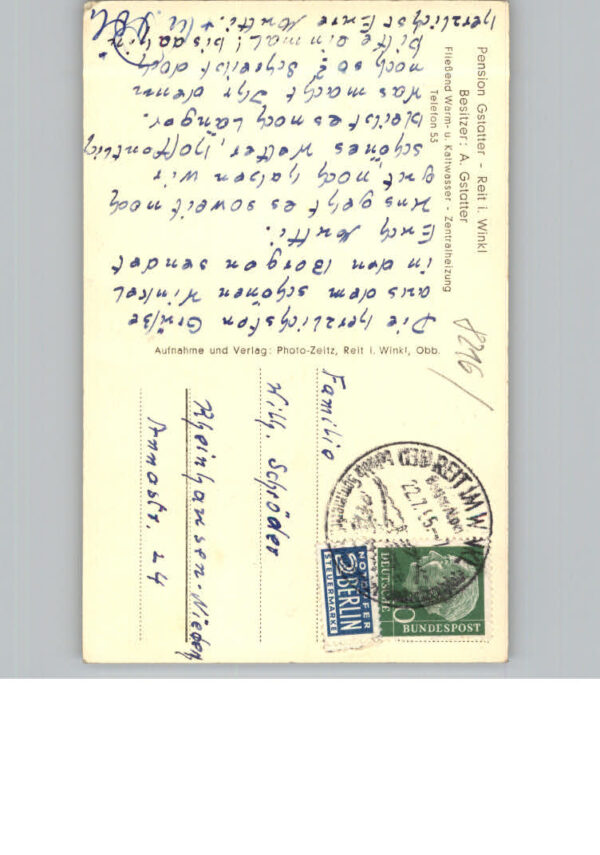 Pension Gstatter - Reit i. Winkl
Besitzer: A. Gstatter
Fließend Warm- u. Kaltwasser - Zentralheizung
Telefon 53
Die herzlichsten Grüße
aus dem schönen Winkel
in den Bergen sendet
Euch Mutti.
Uns geht es soweit noch
gut, noch haben wir
schönes Wetter, hoffentlich
bleibt es noch länger.
Was macht Ihr denn
noch so? Schreibt doch
bitte einmal! bis dahin
herzlichst Eure Mutti.
Aufnahme und Verlag: Photo-Zeitz, Reit i. Winkl, Obb.
8216
Familie
Wilh. Schröder
Rheinhausen-Niederh
Annastr. 24
REIT IM WINKL
22.7.
NOTOPFER
2 BERLIN
STEUERMARKE
DEUTSCHE
BUNDESPOST